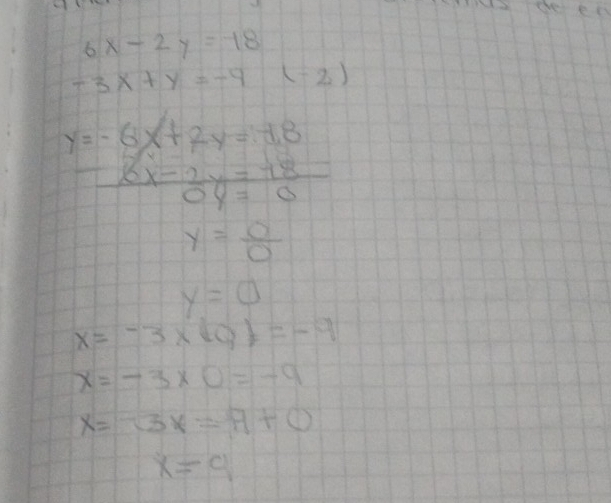 6x - 2y = 18
-3x + y = -9 (-2)
y = -6x + 2y = -18
6x - 2y = 18
0y = 0
y = 0/0
y = 0
x = -3x(0) = -9
x = -3x0 = -9
x = -3x = 9 + 0
x = 9